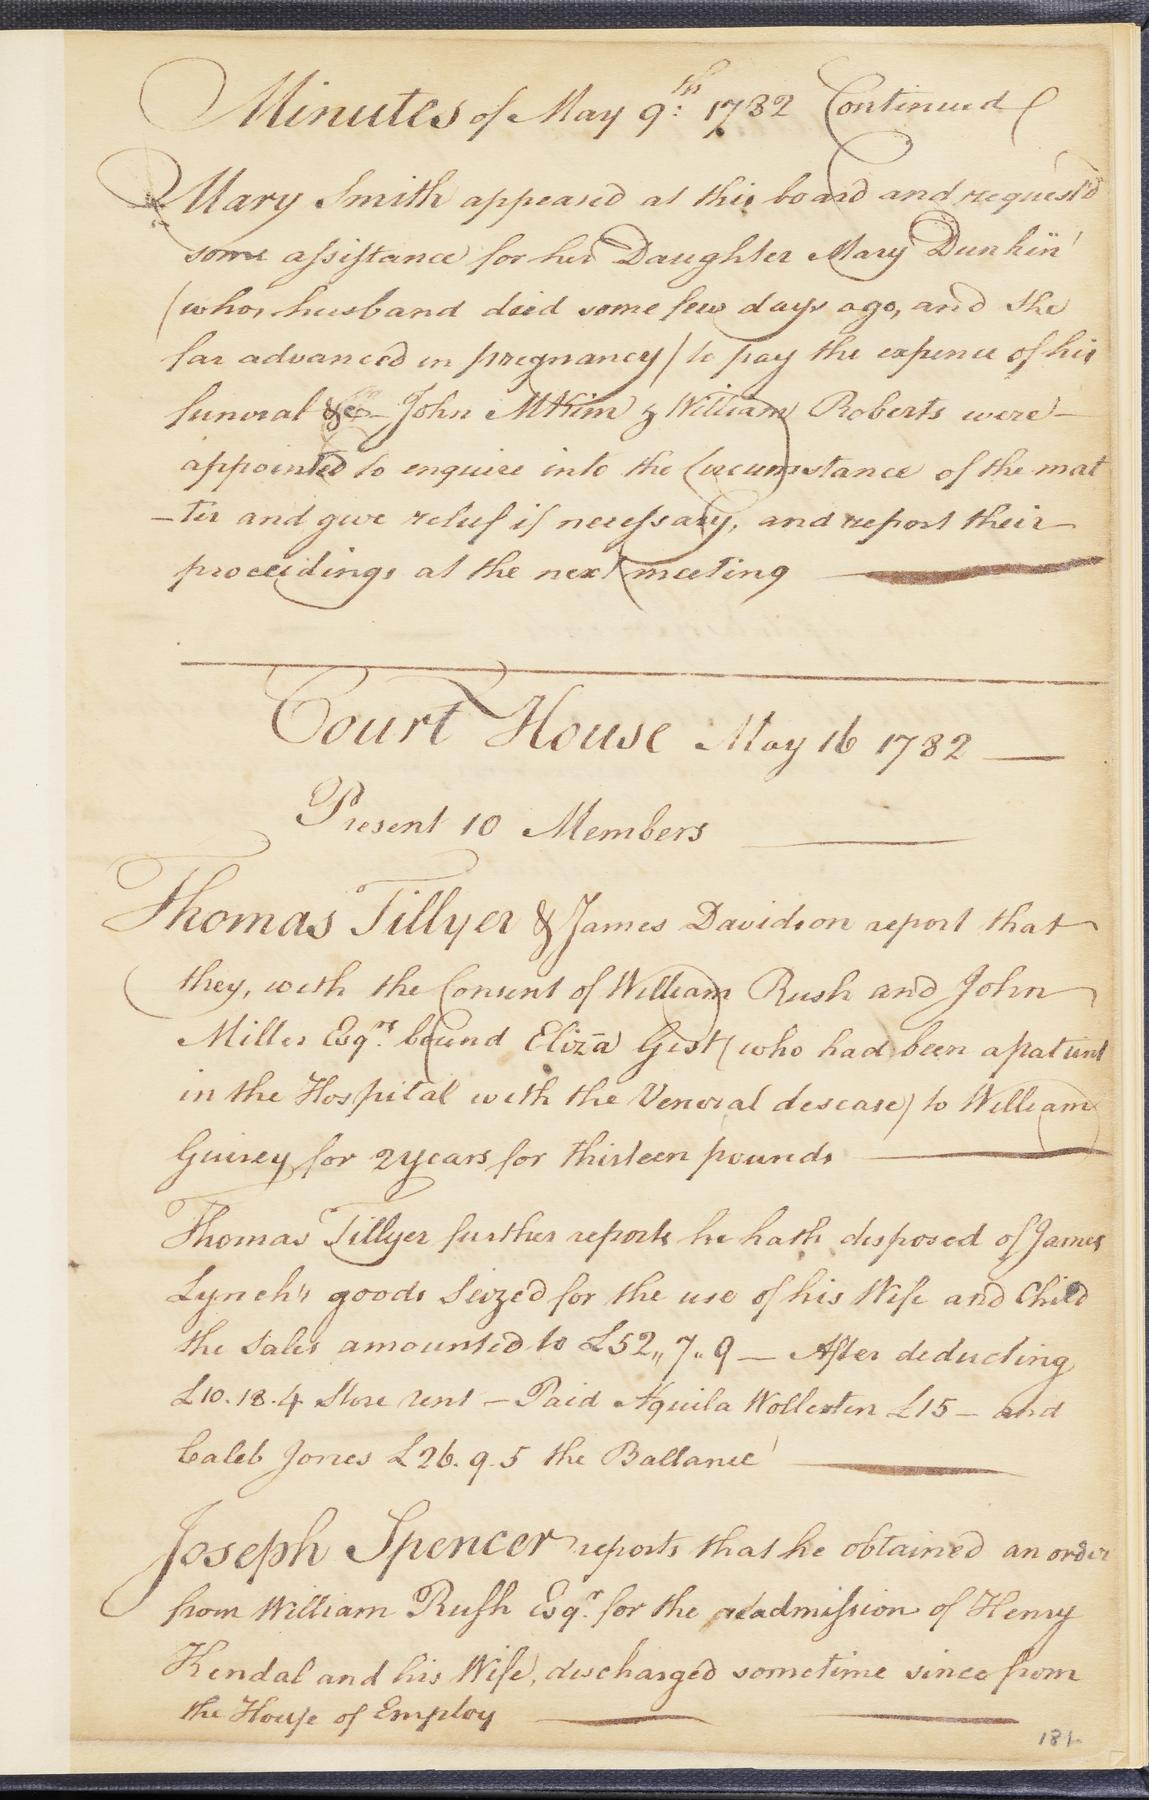 Minutes of May 9:th 1782 Continued
Mary Smith appeared at this board and request'd
some assistance for her Daughter Mary Dunkin
(whos husband died some few days ago, and she
far advanced in pregnancy) to pay the expence of his
funeral &c John Mkim & William Roberts were
appointed to enquire into the Circumstance of the mat
-ter and give relief if necessary, and report their
proceedings at the next meeting
Court House May 16 1782
Present 10 Members
Thomas Tillyer & James Davidson report that
they, with the Consent of William Rush and John
Miller Esqrs. bound Eliza Gist (who had been a patient
in the Hospital with the Veneral desease) to William
Guirey for 2 years for thirteen pounds
Thomas Tillyer further reports he hath disposed of James
Lynch's goods Seized for the use of his Wife and Child
the Sales amounted to £52,,7,,9 — After deducting
£10.18.4 Store rent — Paid Aquila Wollerton £15 — and
Caleb Jones £26.9.5 the Ballance
Joseph Spencer reports that he obtained an order
from William Rush Esqr. for the readmission of Henry
Kendal and his Wife, discharged sometime since from
the House of Employ
181